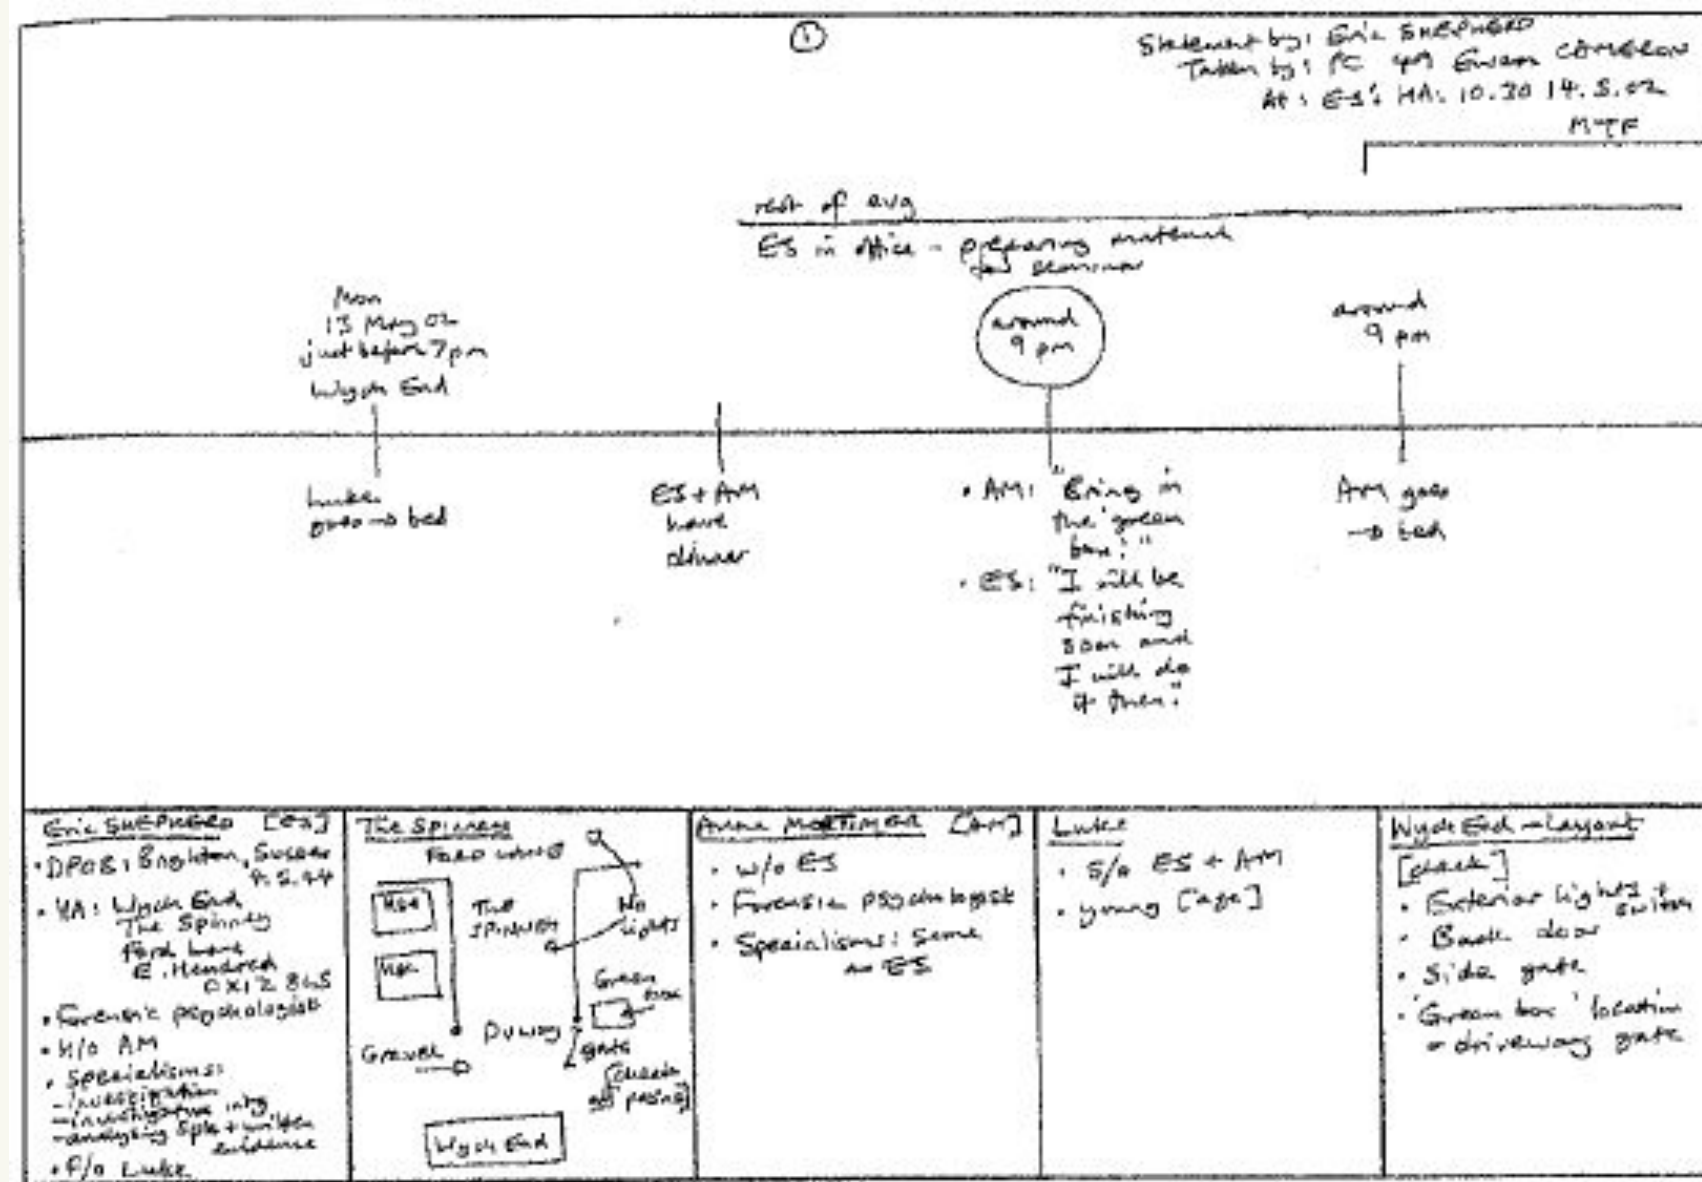 ①
Statement by: Eric SHEPHERD
Taken by: PC 49 Ewan CAMERON
At: ES's HA: 10.30 14.5.02
MTF
rest of evg
ES in office - preparing material
for seminar
Mon
13 May 02
just before 7pm
Wych End
around
9 pm
around
9 pm
Luke
goes → bed
ES + AM
have
dinner
• AM: "Bring in
the 'green
box'."
• ES: "I will be
finishing
soon and
I will do
it then."
AM goes
→ bed
Eric SHEPHERD [ES]
• DPOB: Brighton, Sussex
9.5.44
• HA: Wych End
The Spinney
Ford Lane
E. Hendred
OX12 8LS
• Forensic psychologist
• H/o AM
• Specialisms:
- investigation
- investigative intg
- analysing spkn + written
evidence
• F/o Luke
The Spinney
FORD LANE
Hse
Hse
The
SPINNEY
No
lights
Green
box
D'way
gate
Gravel
[check
posing]
Wych End
Anna MORTIMER [AM]
• w/o ES
• Forensic psychologist
• Specialisms: Same
as ES
Luke
• S/o ES + AM
• young [age]
Wych End - Layout
[check]
• Exterior lights +
switch
• Back door
• Side gate
• 'Green box' location
- driveway gate